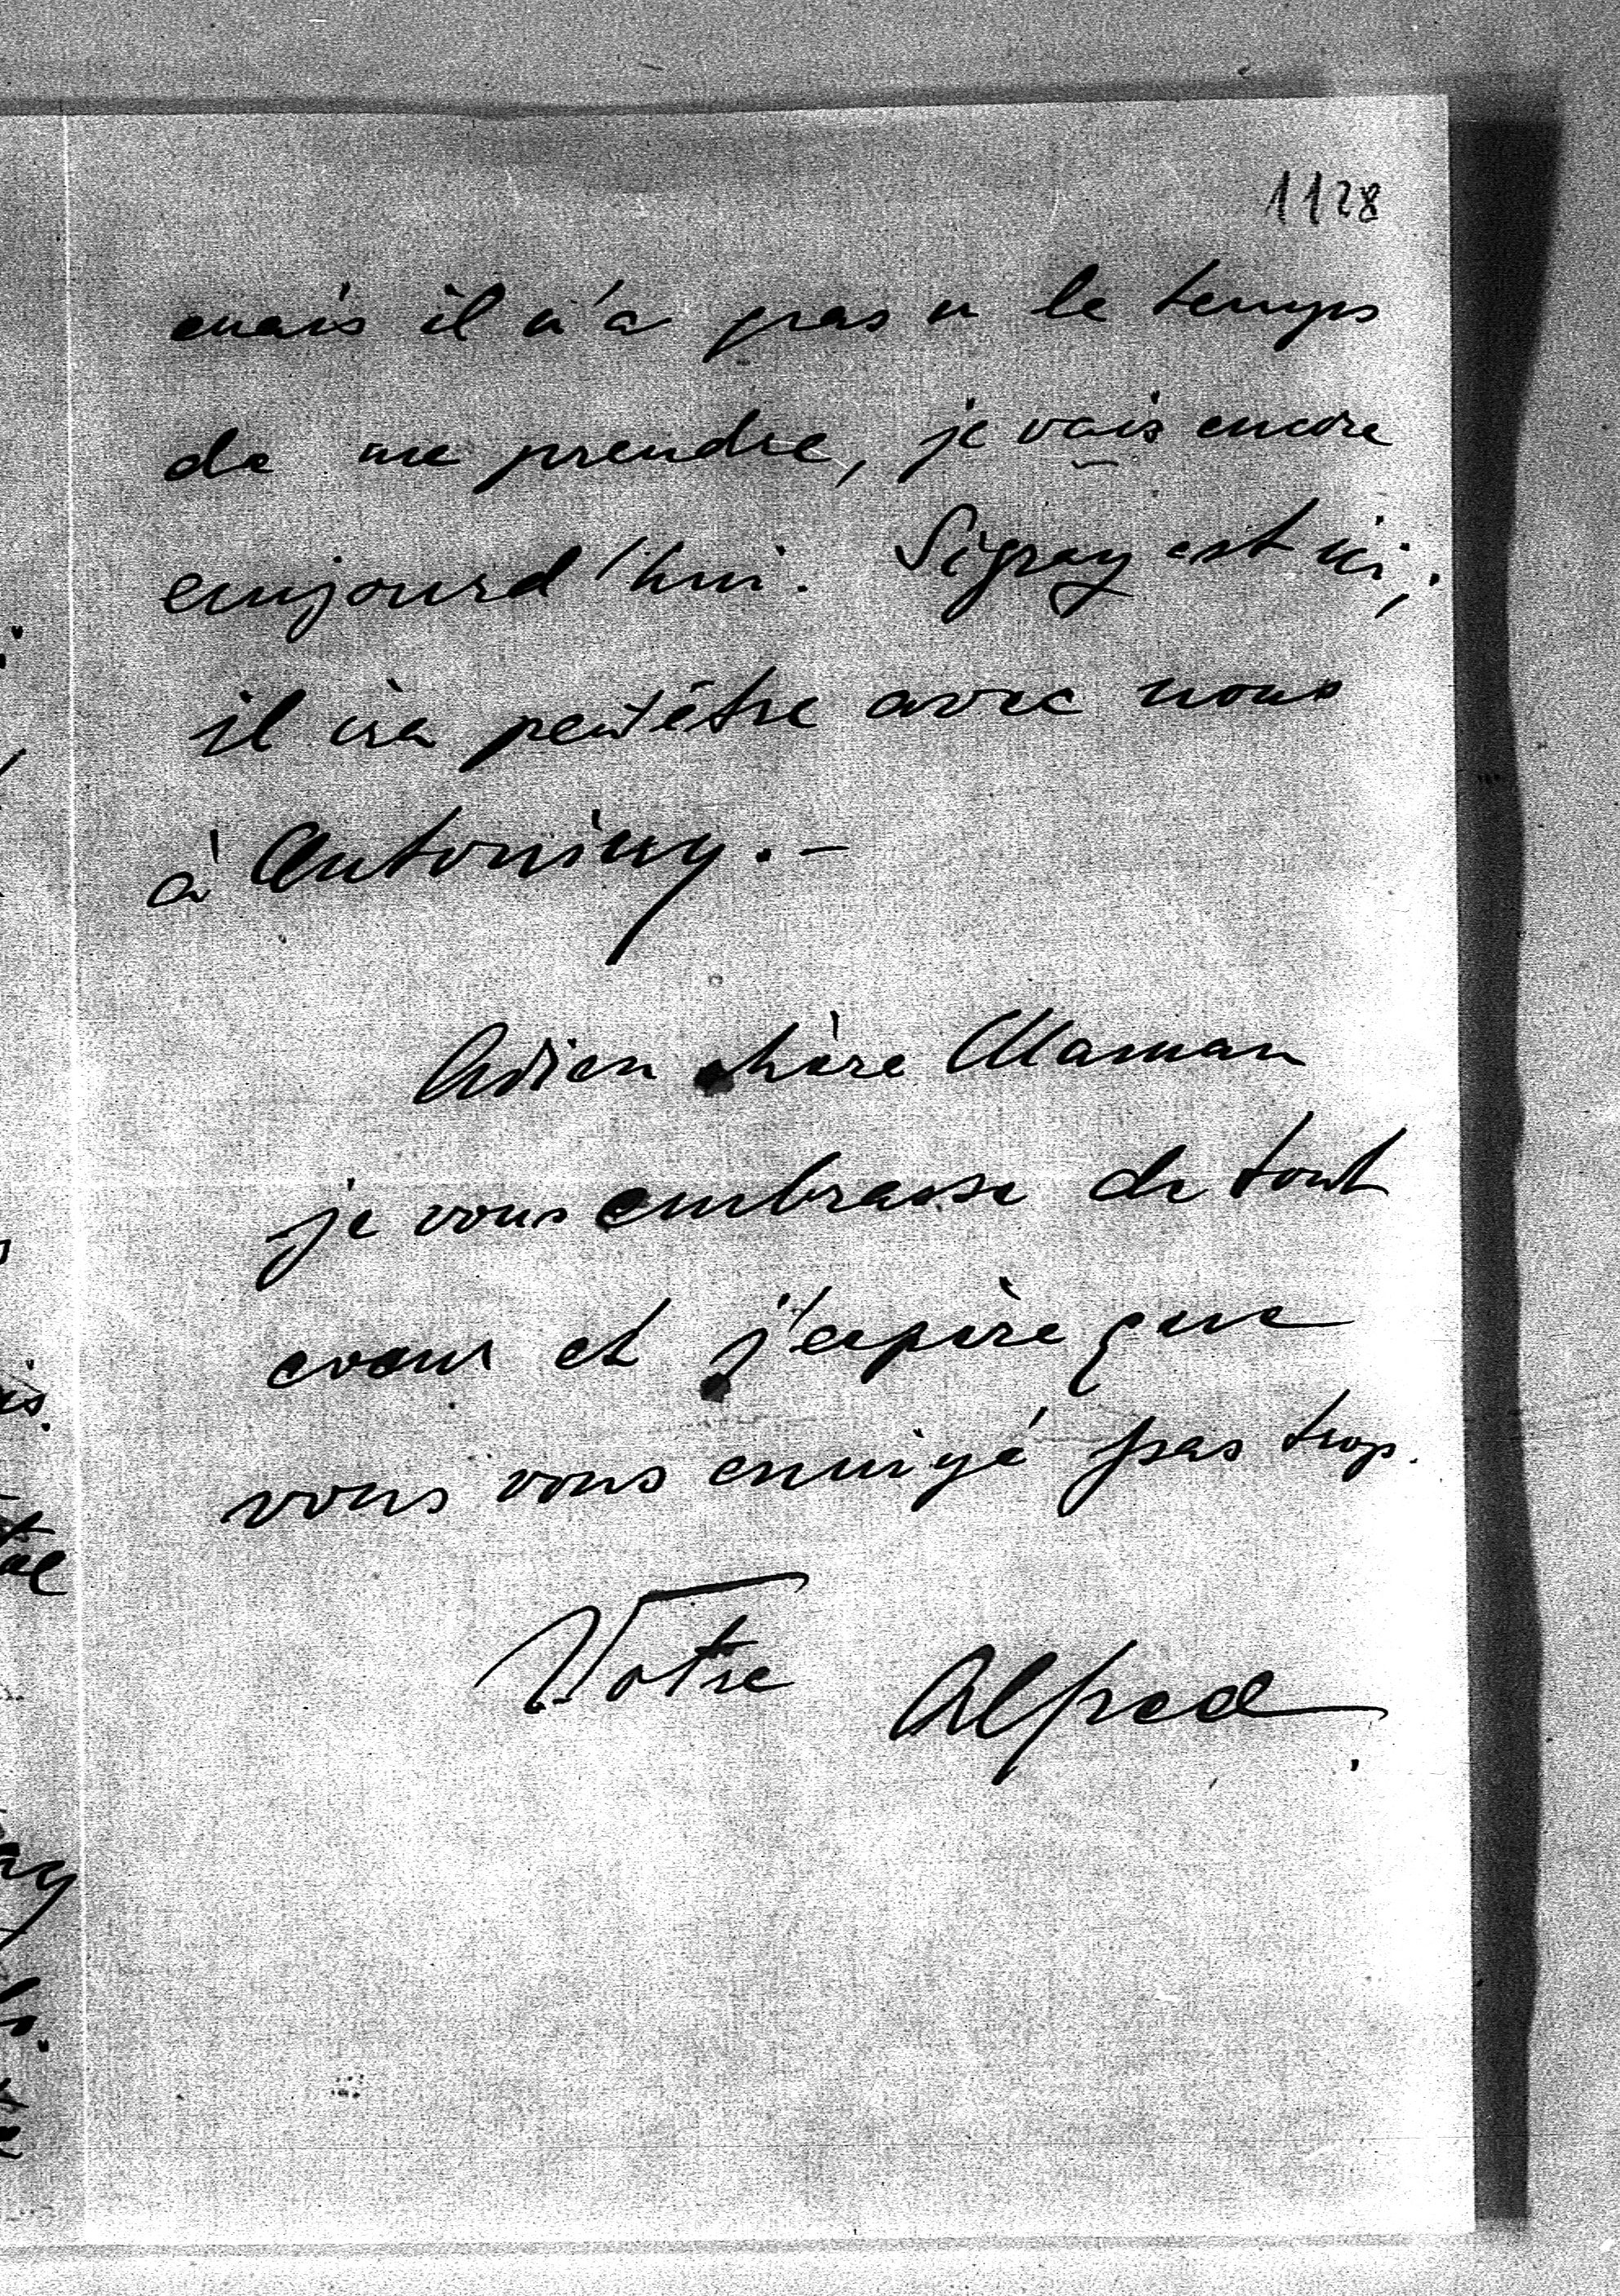 1128
mais il n'a pas u le temps
de me prendre, je vais encore
aujourd'hui. Sigray est ici;
il ira peutêtre avec nous
à Antoniny. –
Adieu chère Maman
je vous embrasse de tout
coeur et j'espère que
vous vous ennuyé pas trop.
Votre Alfred